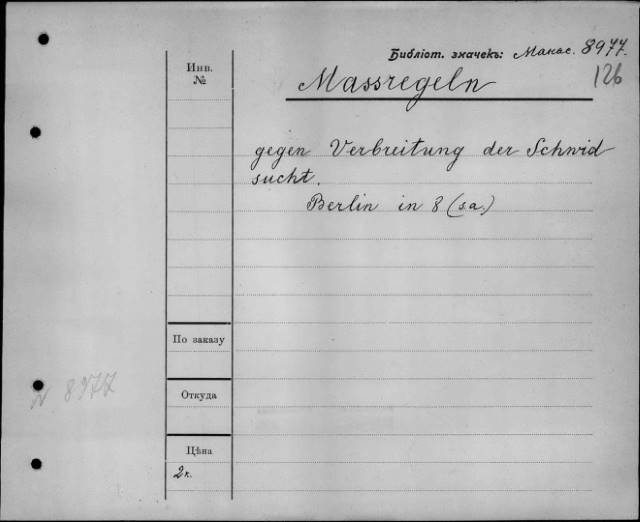 Библіот. значекъ: Макас. 8977.
126
Инв.
№
Massregeln
gegen Verbreitung der Schwid
sucht.
Berlin in 8 (s.a.)
По заказу
№ 8977
Откуда
Цѣна
2к.